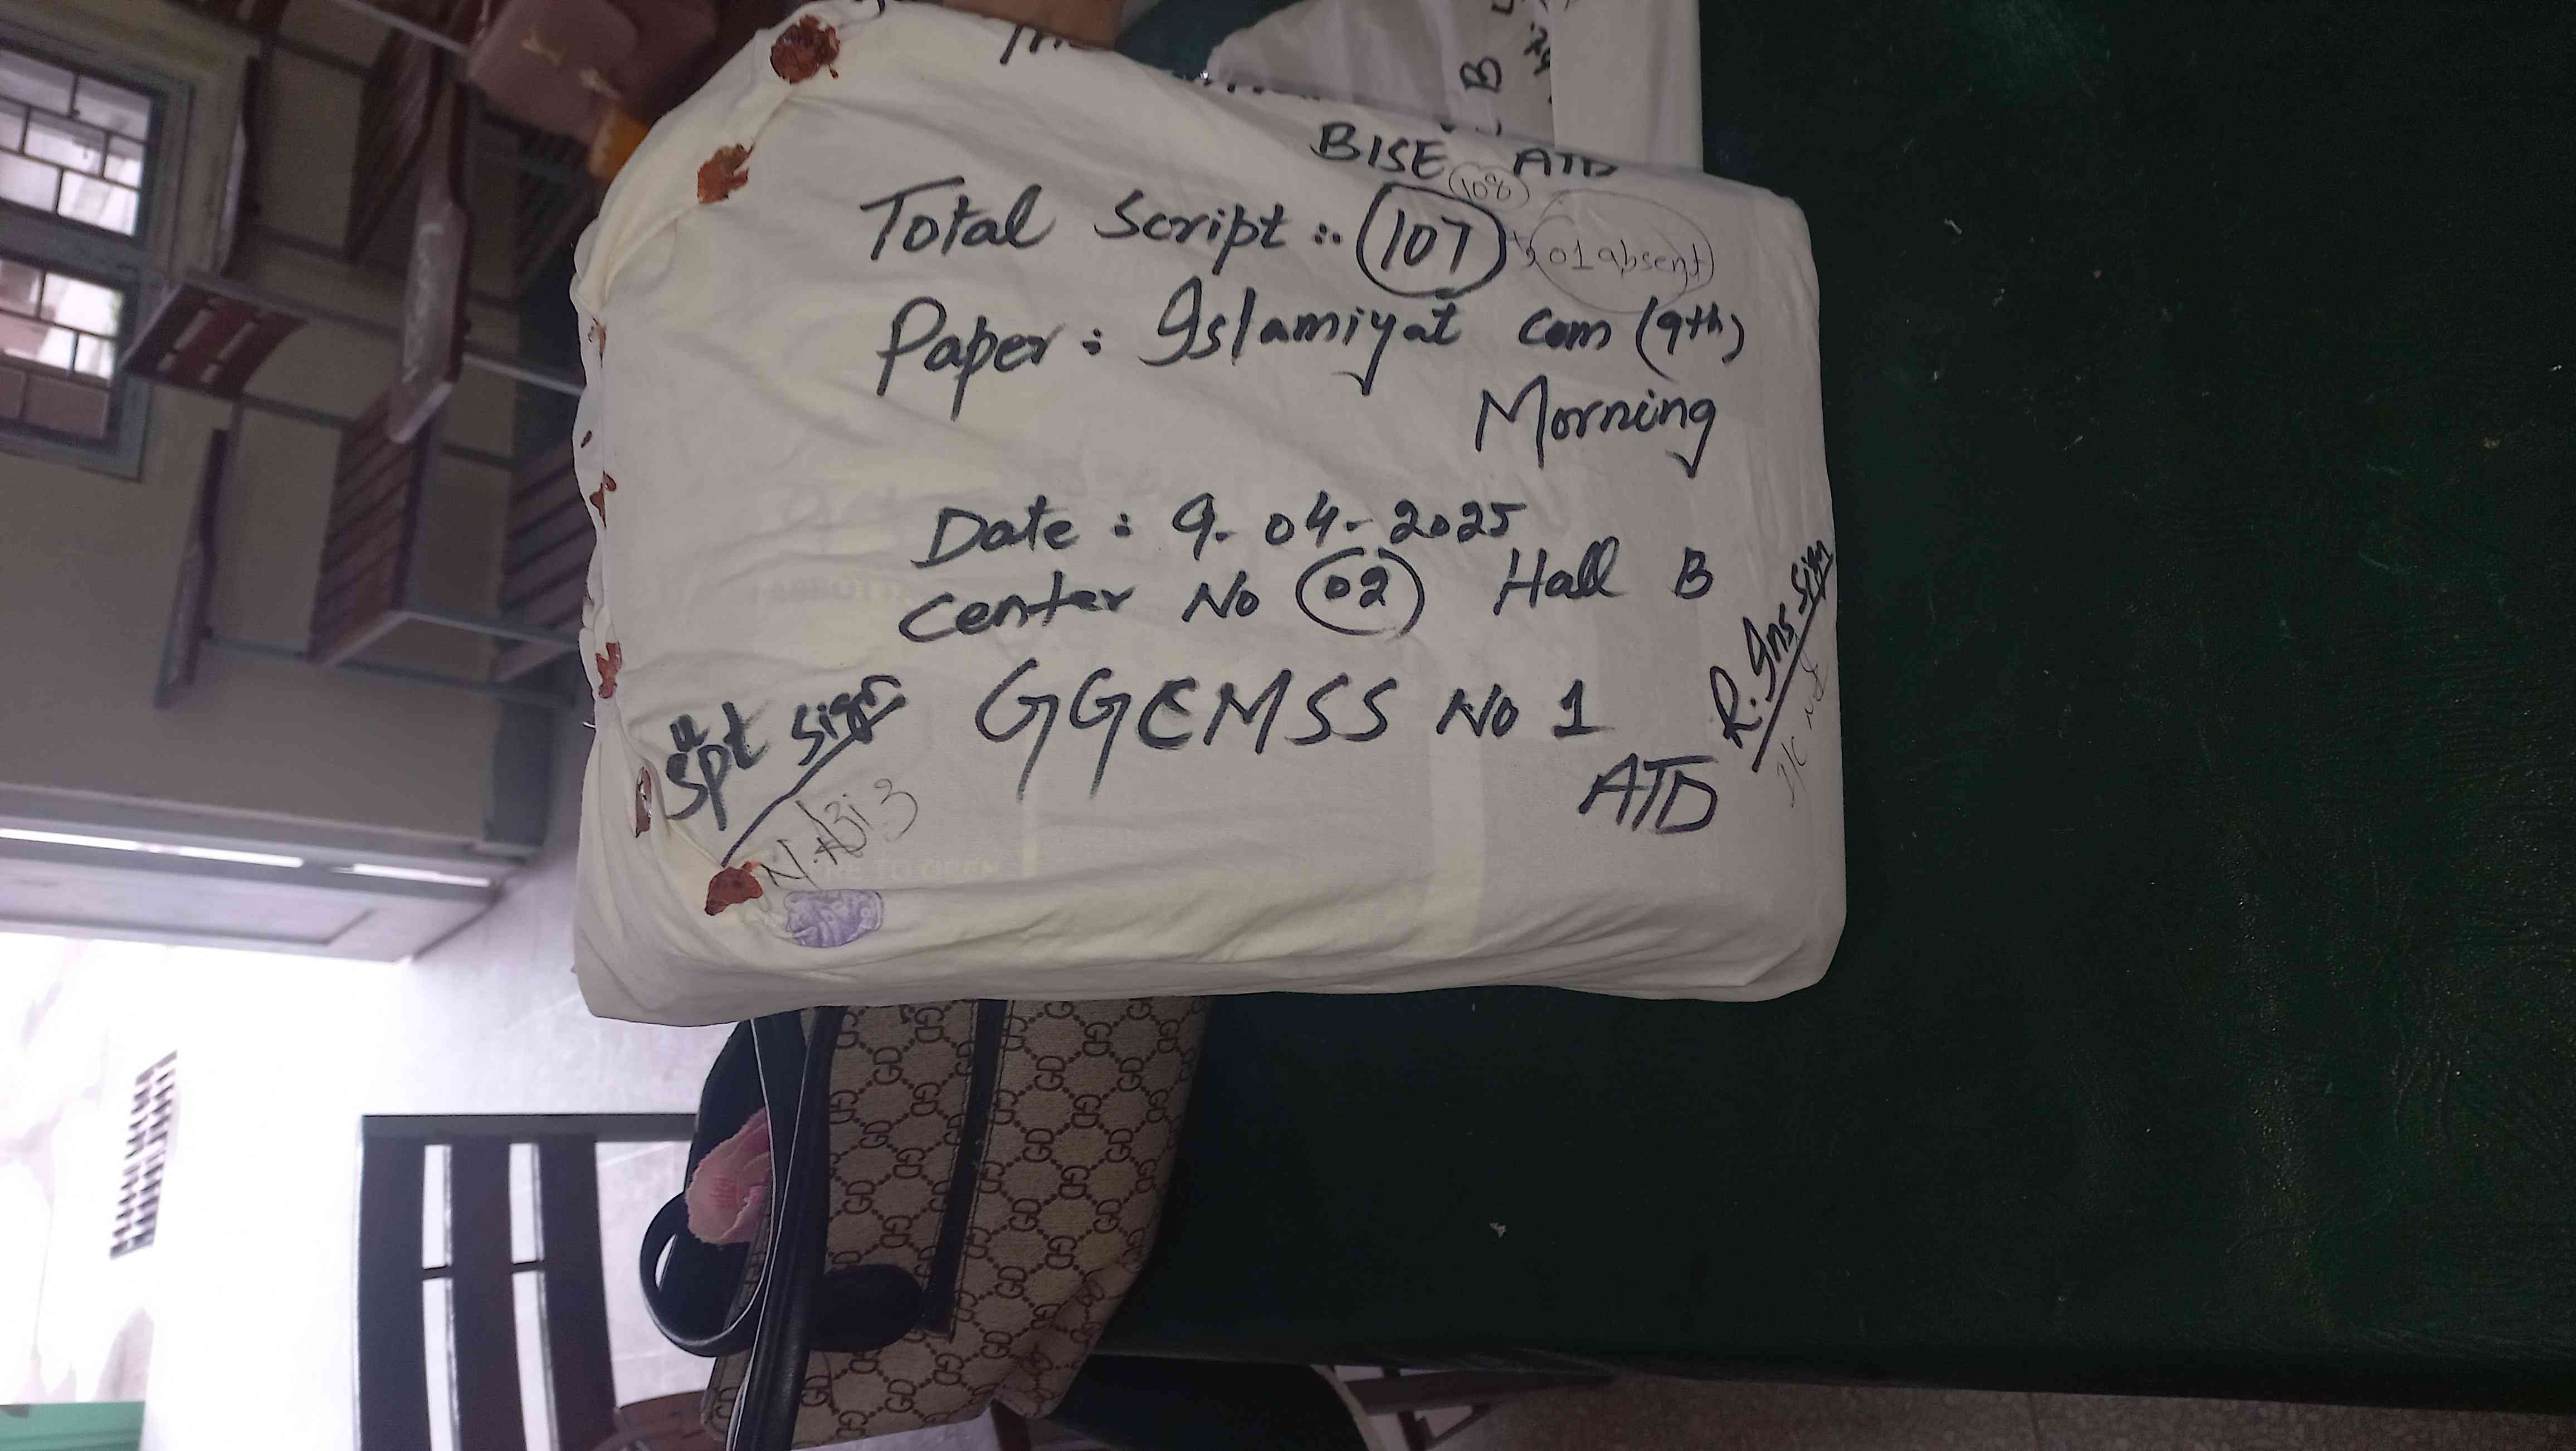 BISE ATD
108
Total Script :. 107 + 01 absent
Paper : Islamiyat com (9th)
Morning
Date : 9-04-2025
Center No 02 Hall B
GGCMSS No 1
ATD
Spt Sign
R. Ins Sign
B